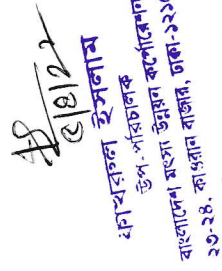 ৫/৪/২১
কামরুল ইসলাম
উপ-পরিচালক
বাংলাদেশ মৎস্য উন্নয়ন কর্পোরেশন
২৩-২৪, কাওরান বাজার, ঢাকা-১২১৫